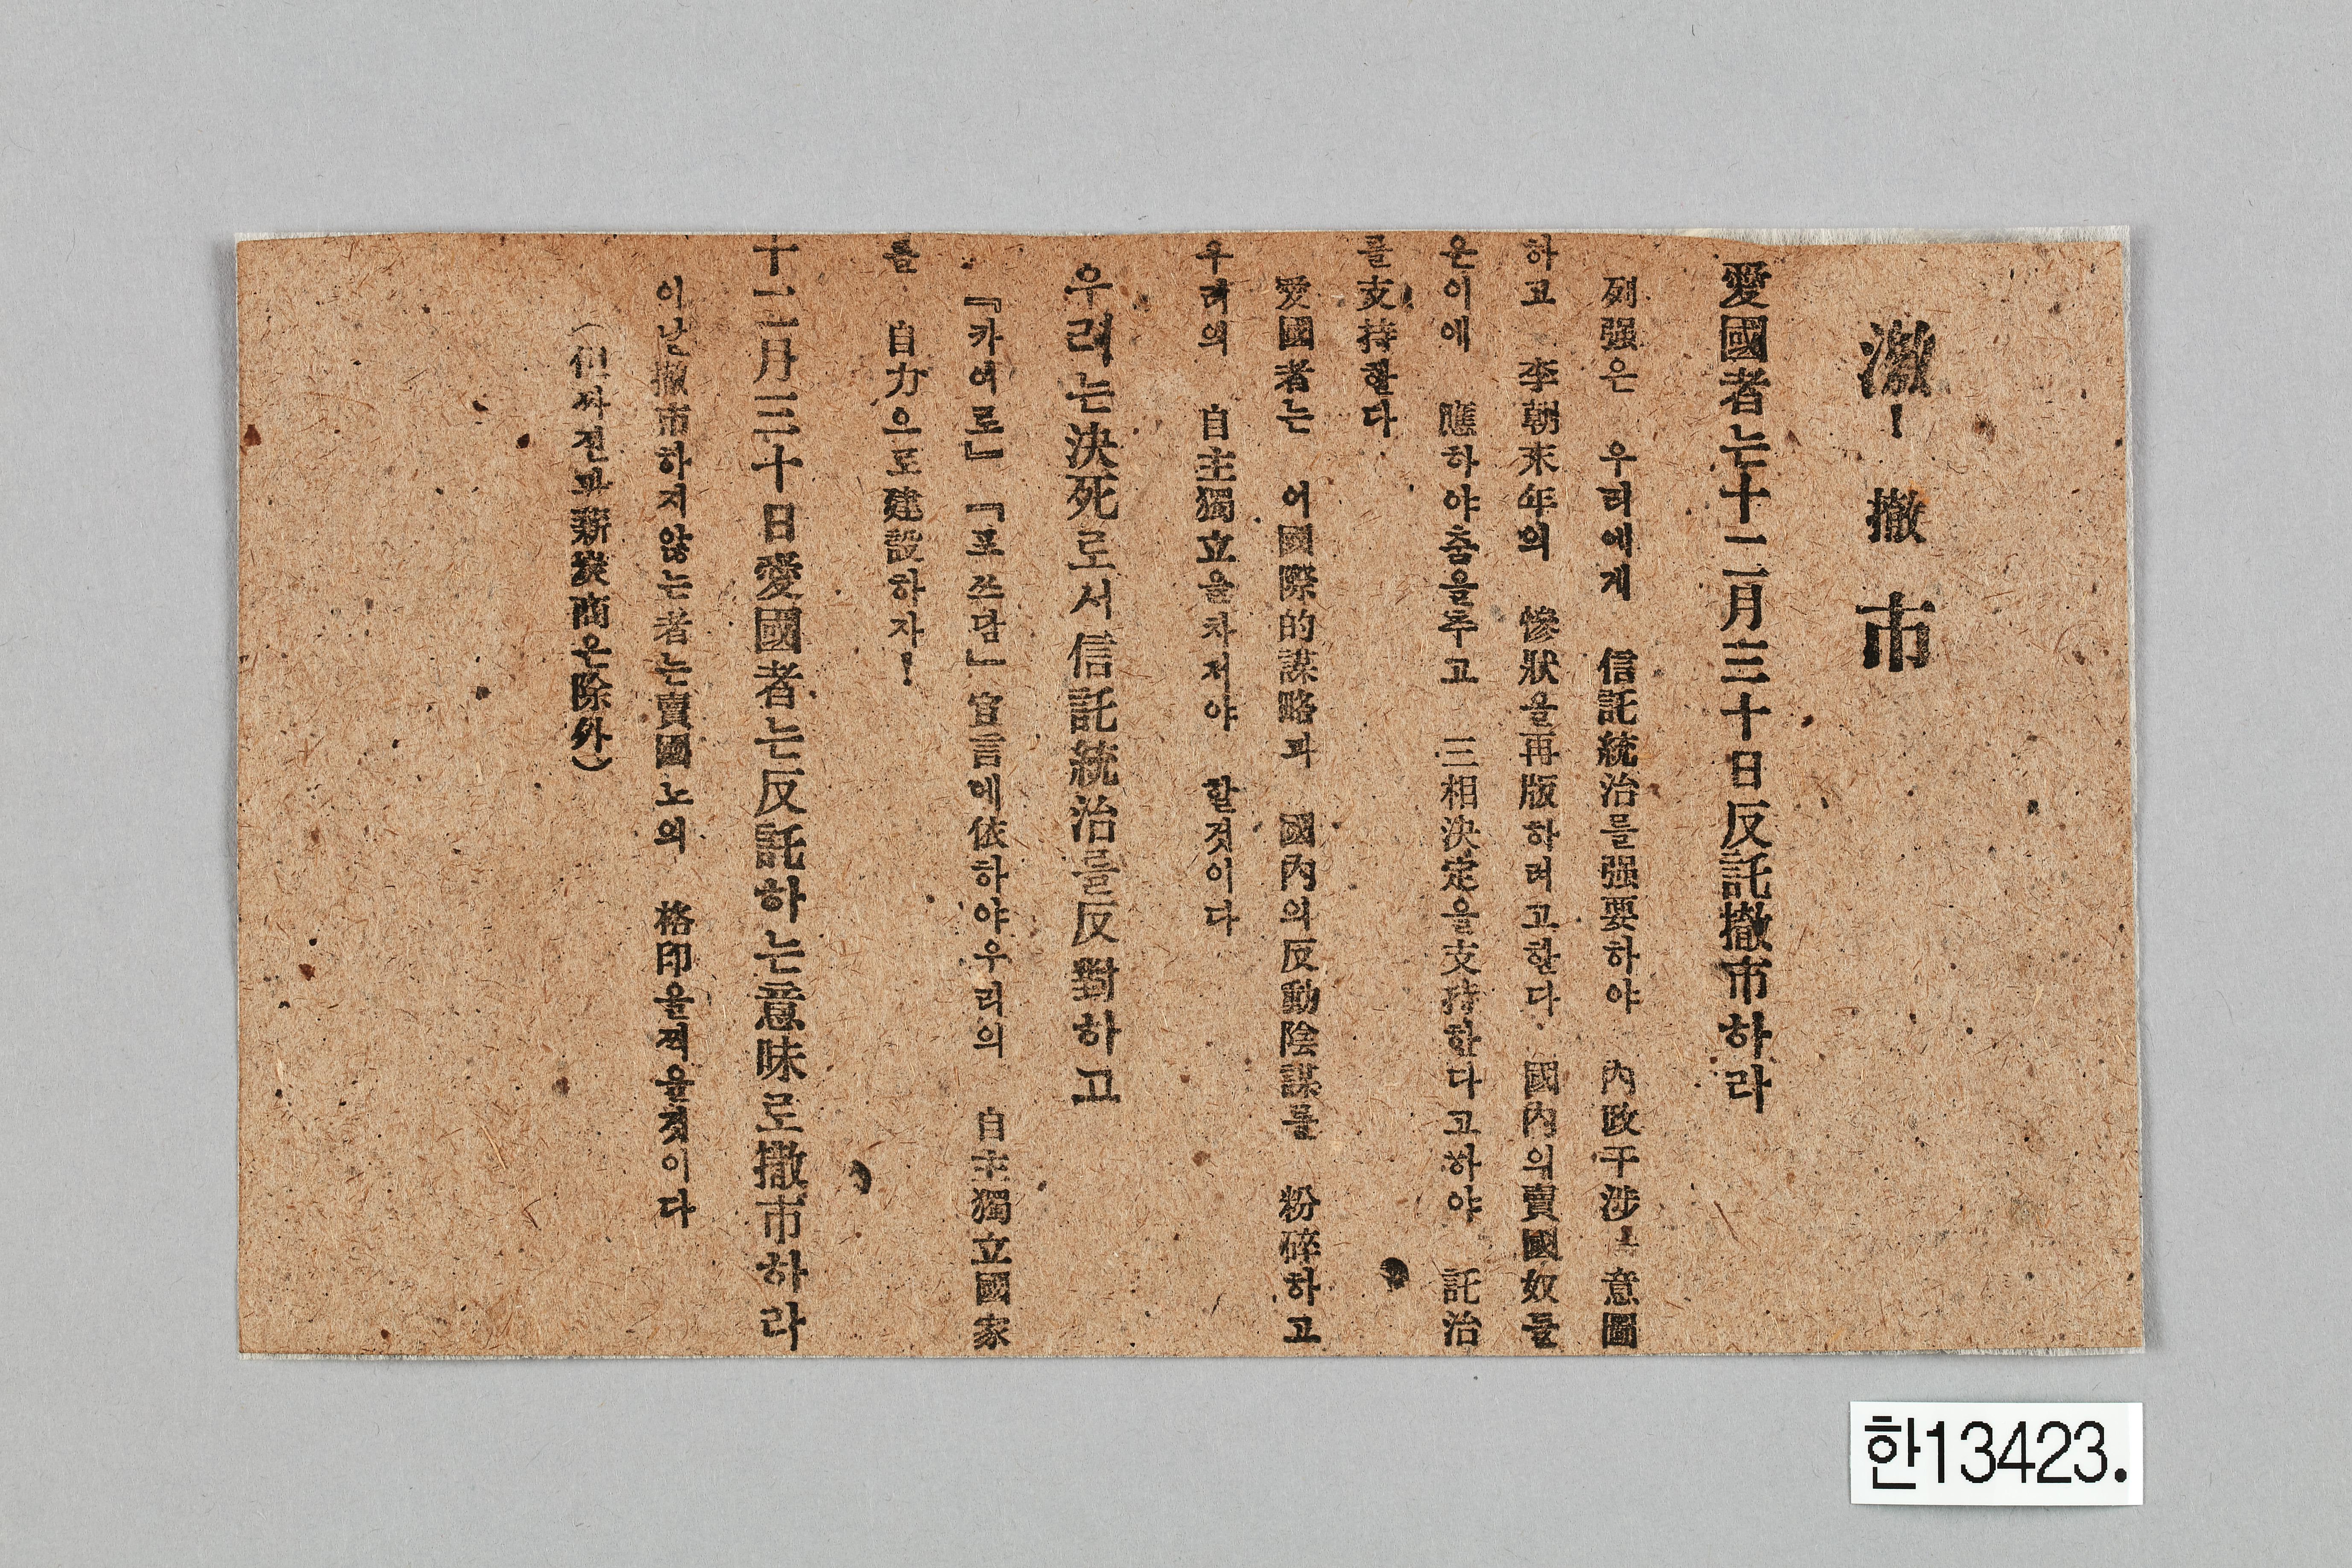 激! 撤市
愛國者는十二月三十日反託撤市하라
列强은 우리에게 信託統治를强要하야 內政干涉 意圖
하고 李朝末年의 慘狀을再版하려고한다 國內의賣國奴들
은이에 應하야춤을추고 三相決定을支持한다고하야 託治
를支持한다
愛國者는 이國際的謀略과 國內의反動陰謀를 粉碎하고
우리의 自主獨立을차저야 할것이다
우리는決死로서信託統治를反對하고
『카이로』『포쓰담』宣言에依하야우리의 自主獨立國家
를 自力으로建設하자!
十二月三十日愛國者는反託하는意味로撤市하라
이날撤市하지않는者는賣國노의 格印을찍을것이다
(但싸전과薪炭商은除外)
한13423.